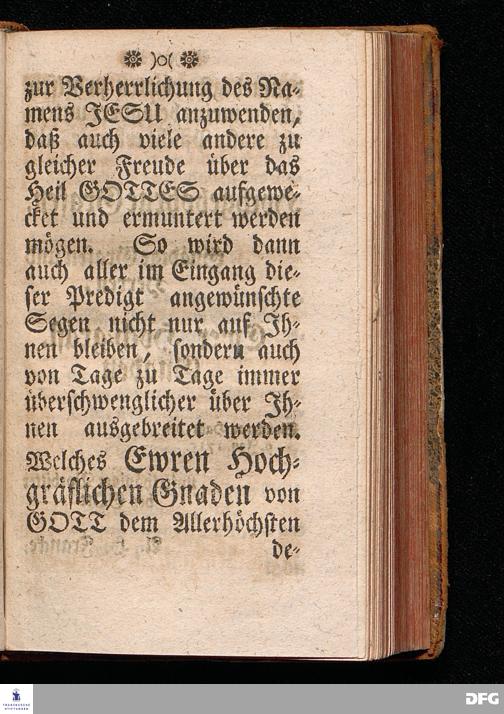 )o(
zur Verherrlichung des Na-
mens JESU anzuwenden,
daß auch viele andere zu
gleicher Freude über das
Heil GOTTES aufgewe-
cket und ermuntert werden
mögen. So wird dann
auch aller im Eingang die-
ser Predigt angewünschte
Segen nicht nur auf Ih-
nen bleiben, sondern auch
von Tage zu Tage immer
überschwenglicher über Ih-
nen ausgebreitet werden.
Welches Ewren Hoch-
gräflichen Gnaden von
GOTT dem Allerhöchsten
de-
FRANCKESCHE
STIFTUNGEN
DFG